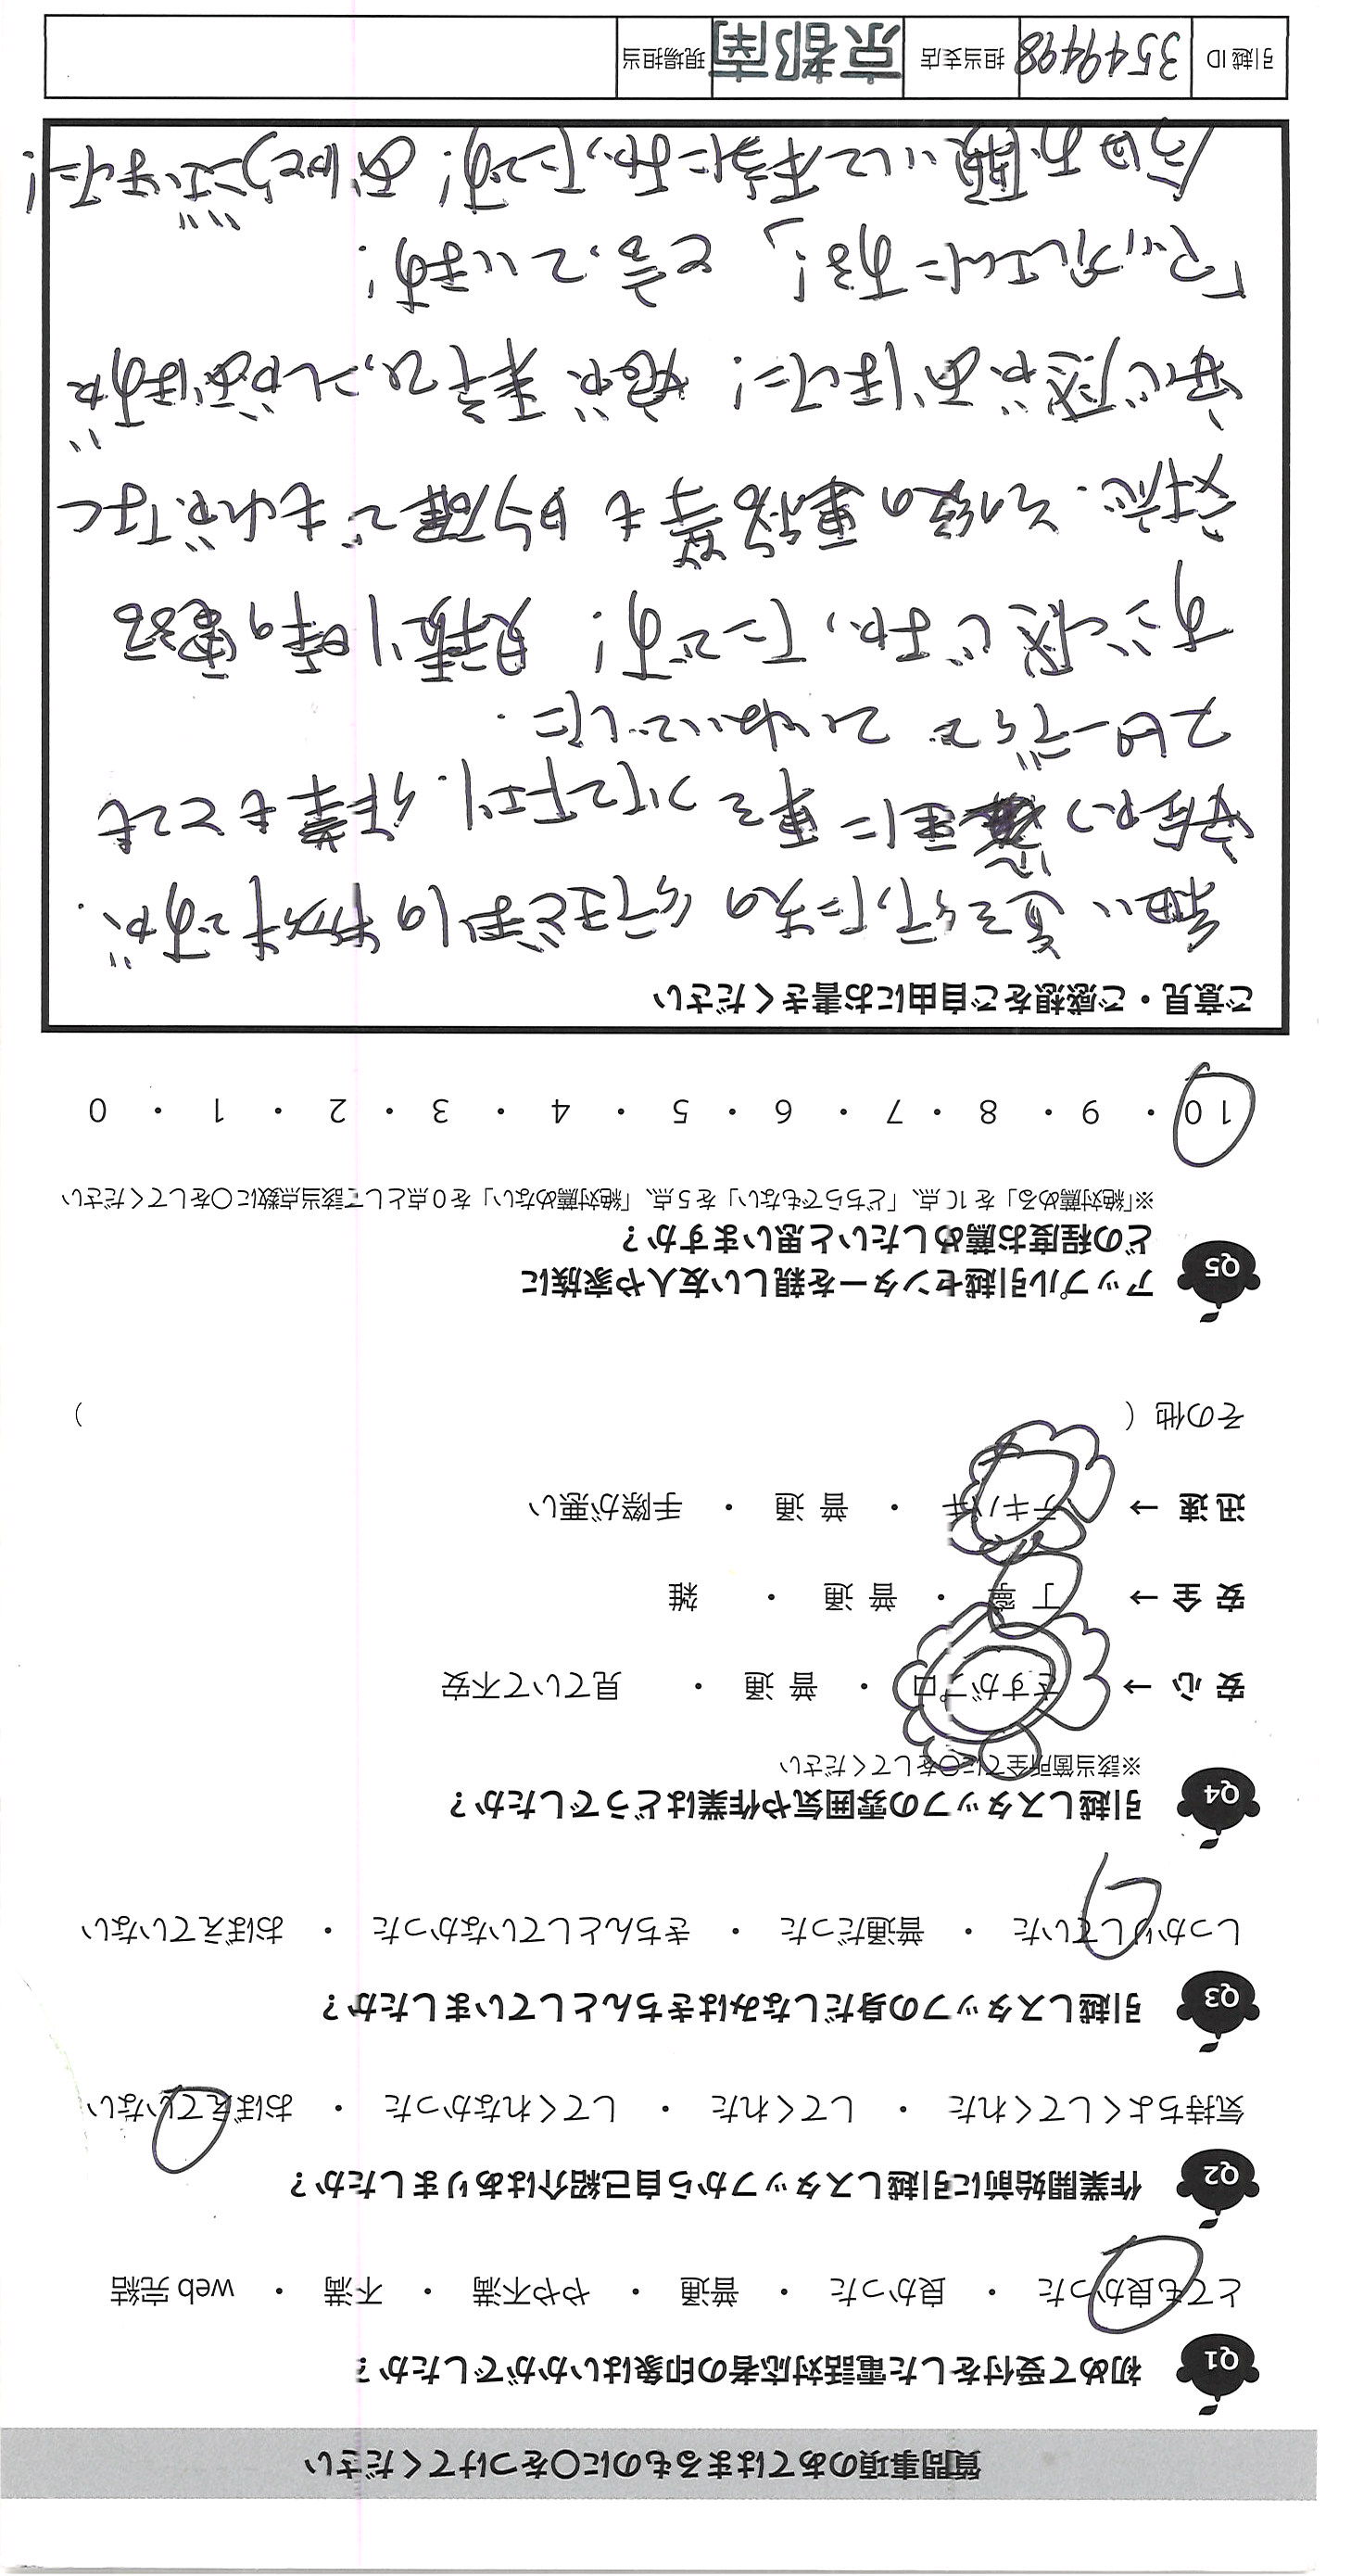 質問事項のあてはまるものに○をつけてください
Q1 初めて受付をした電話対応者の印象はいかがでしたか？
とても良かった ・ 良かった ・ 普通 ・ やや不満 ・ 不満 ・ web 完結
Q2 作業開始前に引越しスタッフから自己紹介はありましたか？
気持ちよくしてくれた ・ してくれた ・ してくれなかった ・ おぼえていない
Q3 引越しスタッフの身だしなみはきちんとしていましたか？
しっかりしていた ・ 普通だった ・ きちんとしていなかった ・ おぼえていない
Q4 引越しスタッフの雰囲気や作業はどうでしたか？
※該当箇所全てに○をしてください
安 心 → さすがプロ ・ 普 通 ・ 見ていて不安
安 全 → 丁 寧 ・ 普 通 ・ 雑
迅 速 → テキパキ ・ 普 通 ・ 手際が悪い
その他（ ）
Q5 アップル引越センターを親しい友人や家族に
どの程度お薦めしたいと思いますか？
※「絶対薦める」を 10 点、「どちらでもない」を 5 点、「絶対薦めない」を 0 点として該当点数に○をしてください
10 ・ 9 ・ 8 ・ 7 ・ 6 ・ 5 ・ 4 ・ 3 ・ 2 ・ 1 ・ 0
ご意見・ご感想をご自由にお書きください
細い 道を
に車を つけて下さり、作業もとても
スピーディで ていねいでした。
すごく感じよかったです! 見積り時の電話
対応、その後の電話等も 明確で それがなく
安心感がありました!
「アップルさんにする!」 と言っています!
今回お願いして本当によかったです! ありがとうございました!
引越 ID 3549498 担当支店 京都南 現場担当